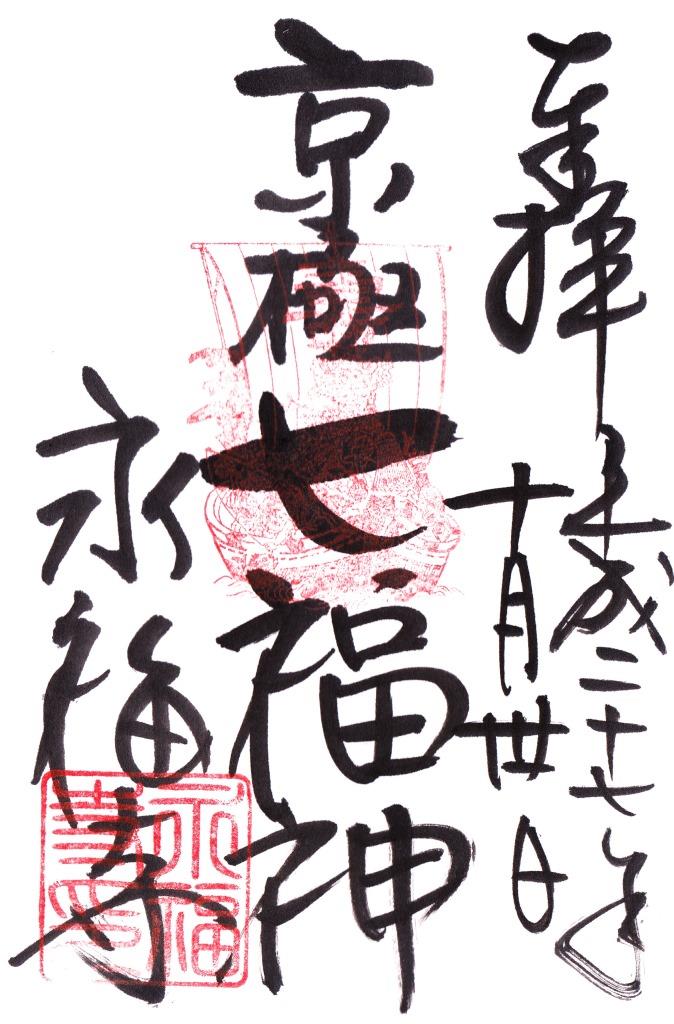 奉拝
平成二十七年
十月丗日
京極
七福神
永福寺
永福寺印